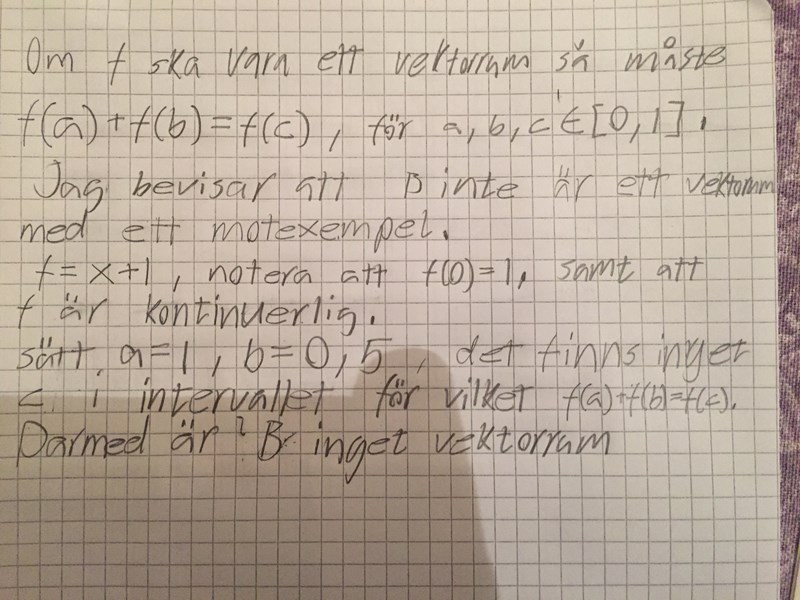 Om f ska vara ett vektorrum så måste
f(a)+f(b)=f(c), för a, b, c ∈ [0,1].
Jag bevisar att B inte är ett vektorrum
med ett motexempel.
f=x+1, notera att f(0)=1, samt att
f är kontinuerlig.
sätt a=1, b=0,5, det finns inget
c i intervallet för vilket f(a)+f(b)=f(c).
Därmed är B inget vektorrum